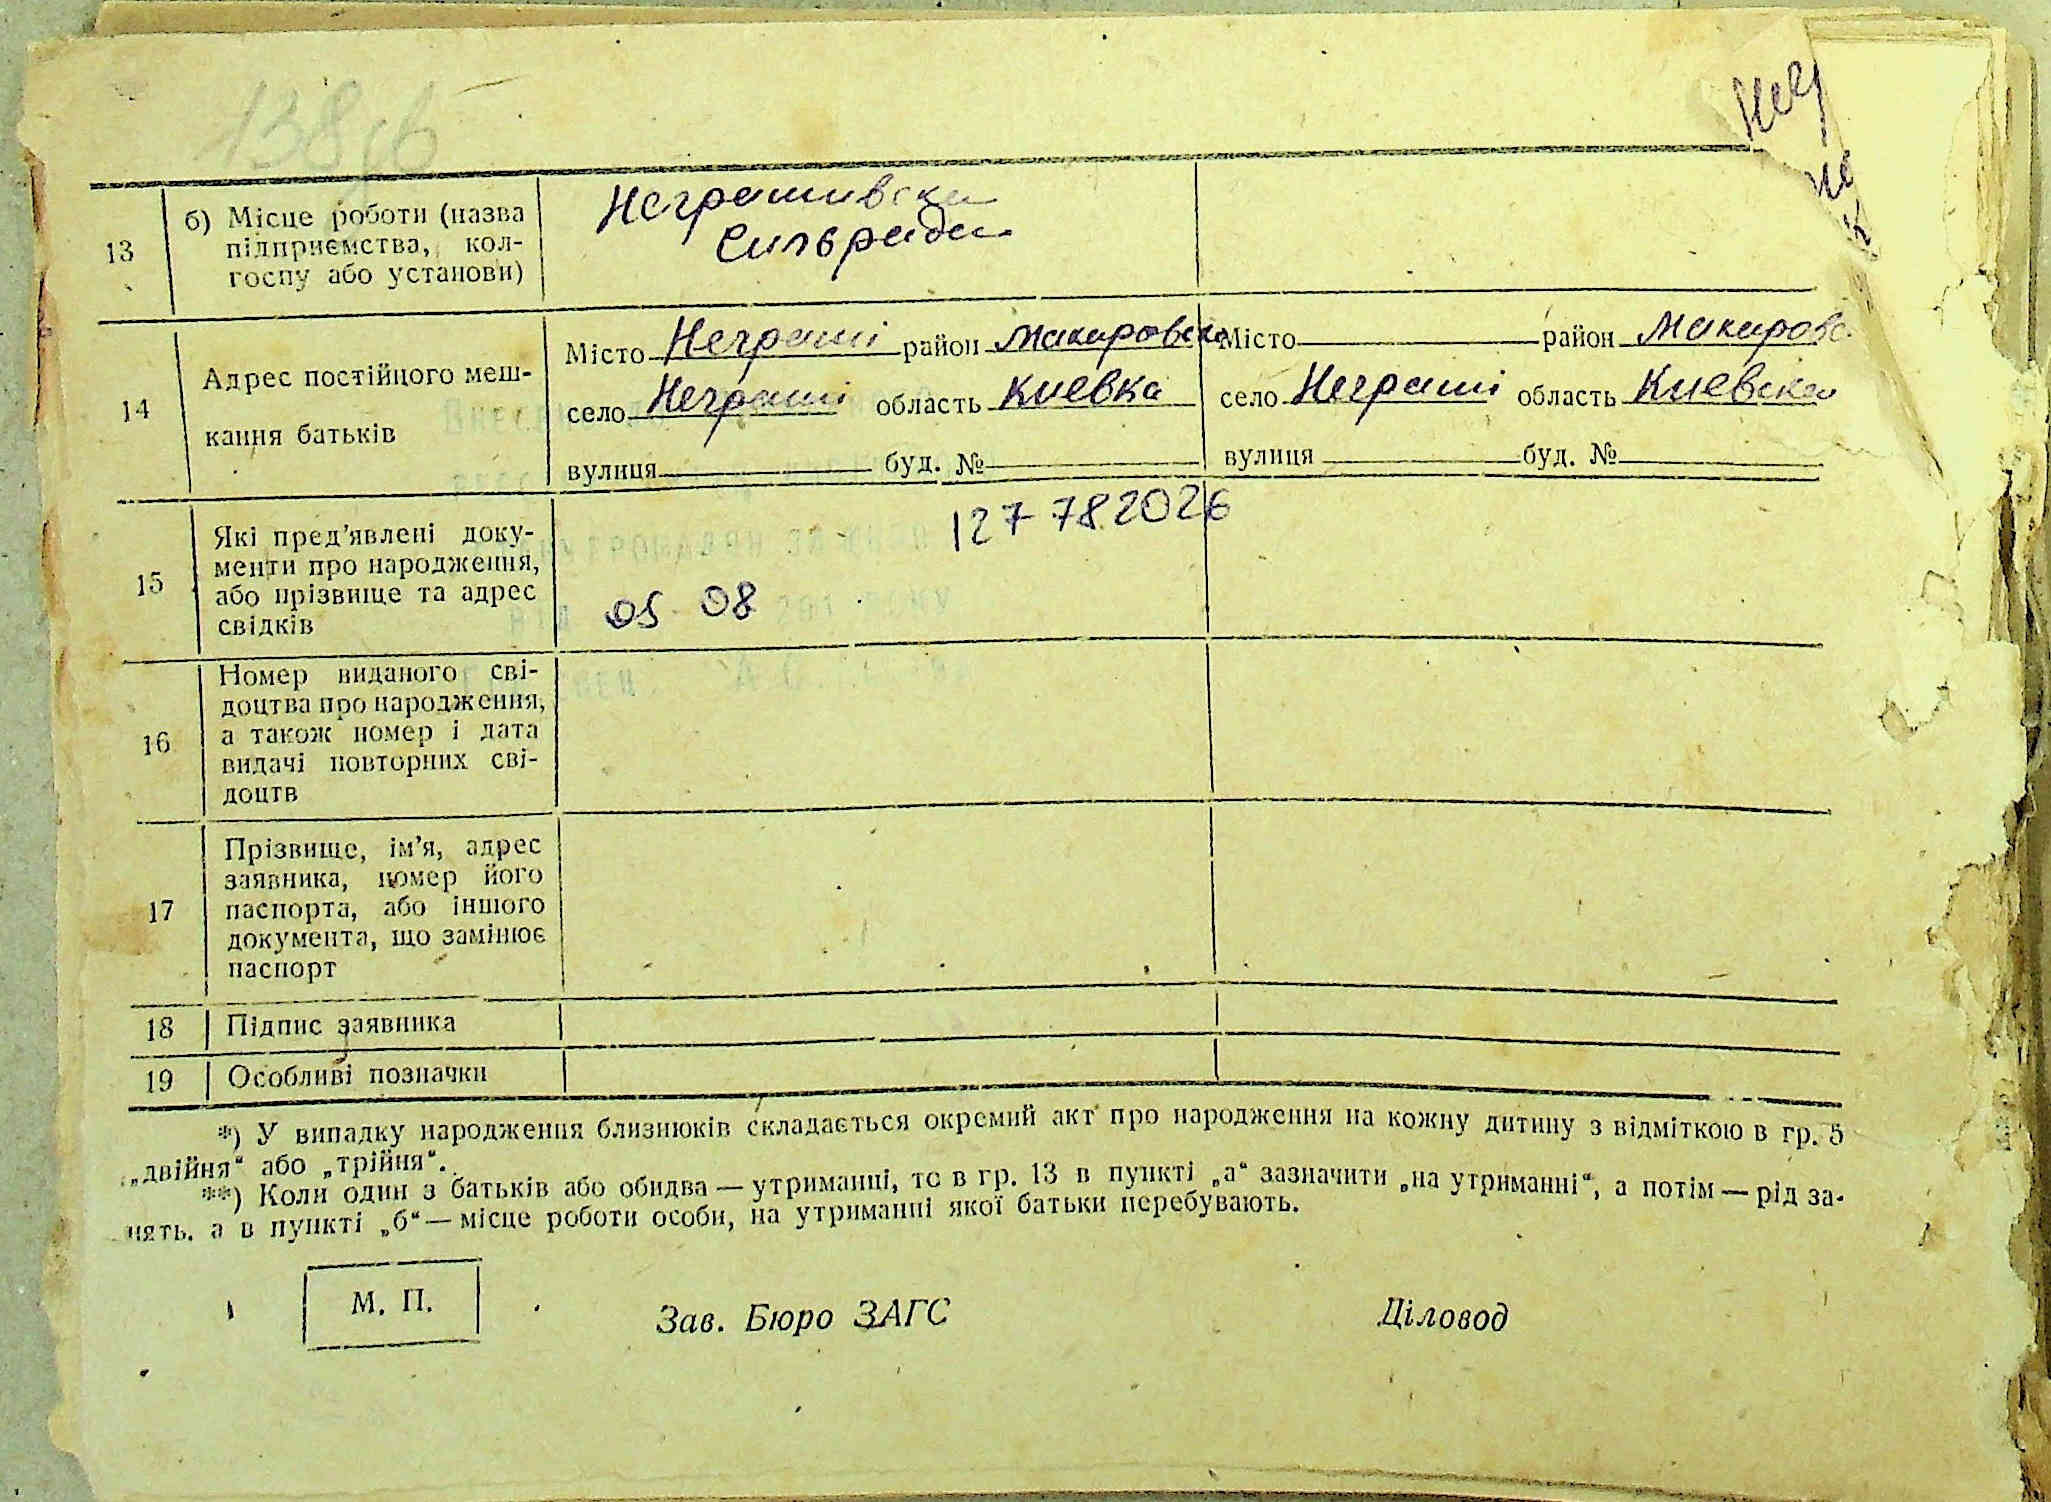 138 зв
13
б) Місце роботи (назва
підприємства, кол-
госпу або установи)
Неграшивска
сильрада
14
Адрес постійного меш-
кання батьків
Місто Неграші район Макаровска
село Неграші область Киевка
вулиця буд. №
Місто район Макаровс
село Неграші область Киевская
вулиця буд. №
15
Які пред'явлені доку-
менти про народження,
або прізвище та адрес
свідків
127 782026
05 08
16
Номер виданого сві-
доцтва про народження,
а також номер і дата
видачі повторних сві-
доцтв
17
Прізвище, ім'я, адрес
заявника, номер його
паспорта, або іншого
документа, що замінює
паспорт
18 Підпис заявника
19 Особливі позначки
*) У випадку народження близнюків складається окремий акт про народження на кожну дитину з відміткою в гр. 5
„двійня“ або „трійня“.
**) Коли один з батьків або обидва — утриманці, то в гр. 13 в пункті „а“ зазначити „на утриманні“, а потім — рід за-
нять, а в пункті „б“ — місце роботи особи, на утриманні якої батьки перебувають.
М. П.
Зав. Бюро ЗАГС
Діловод